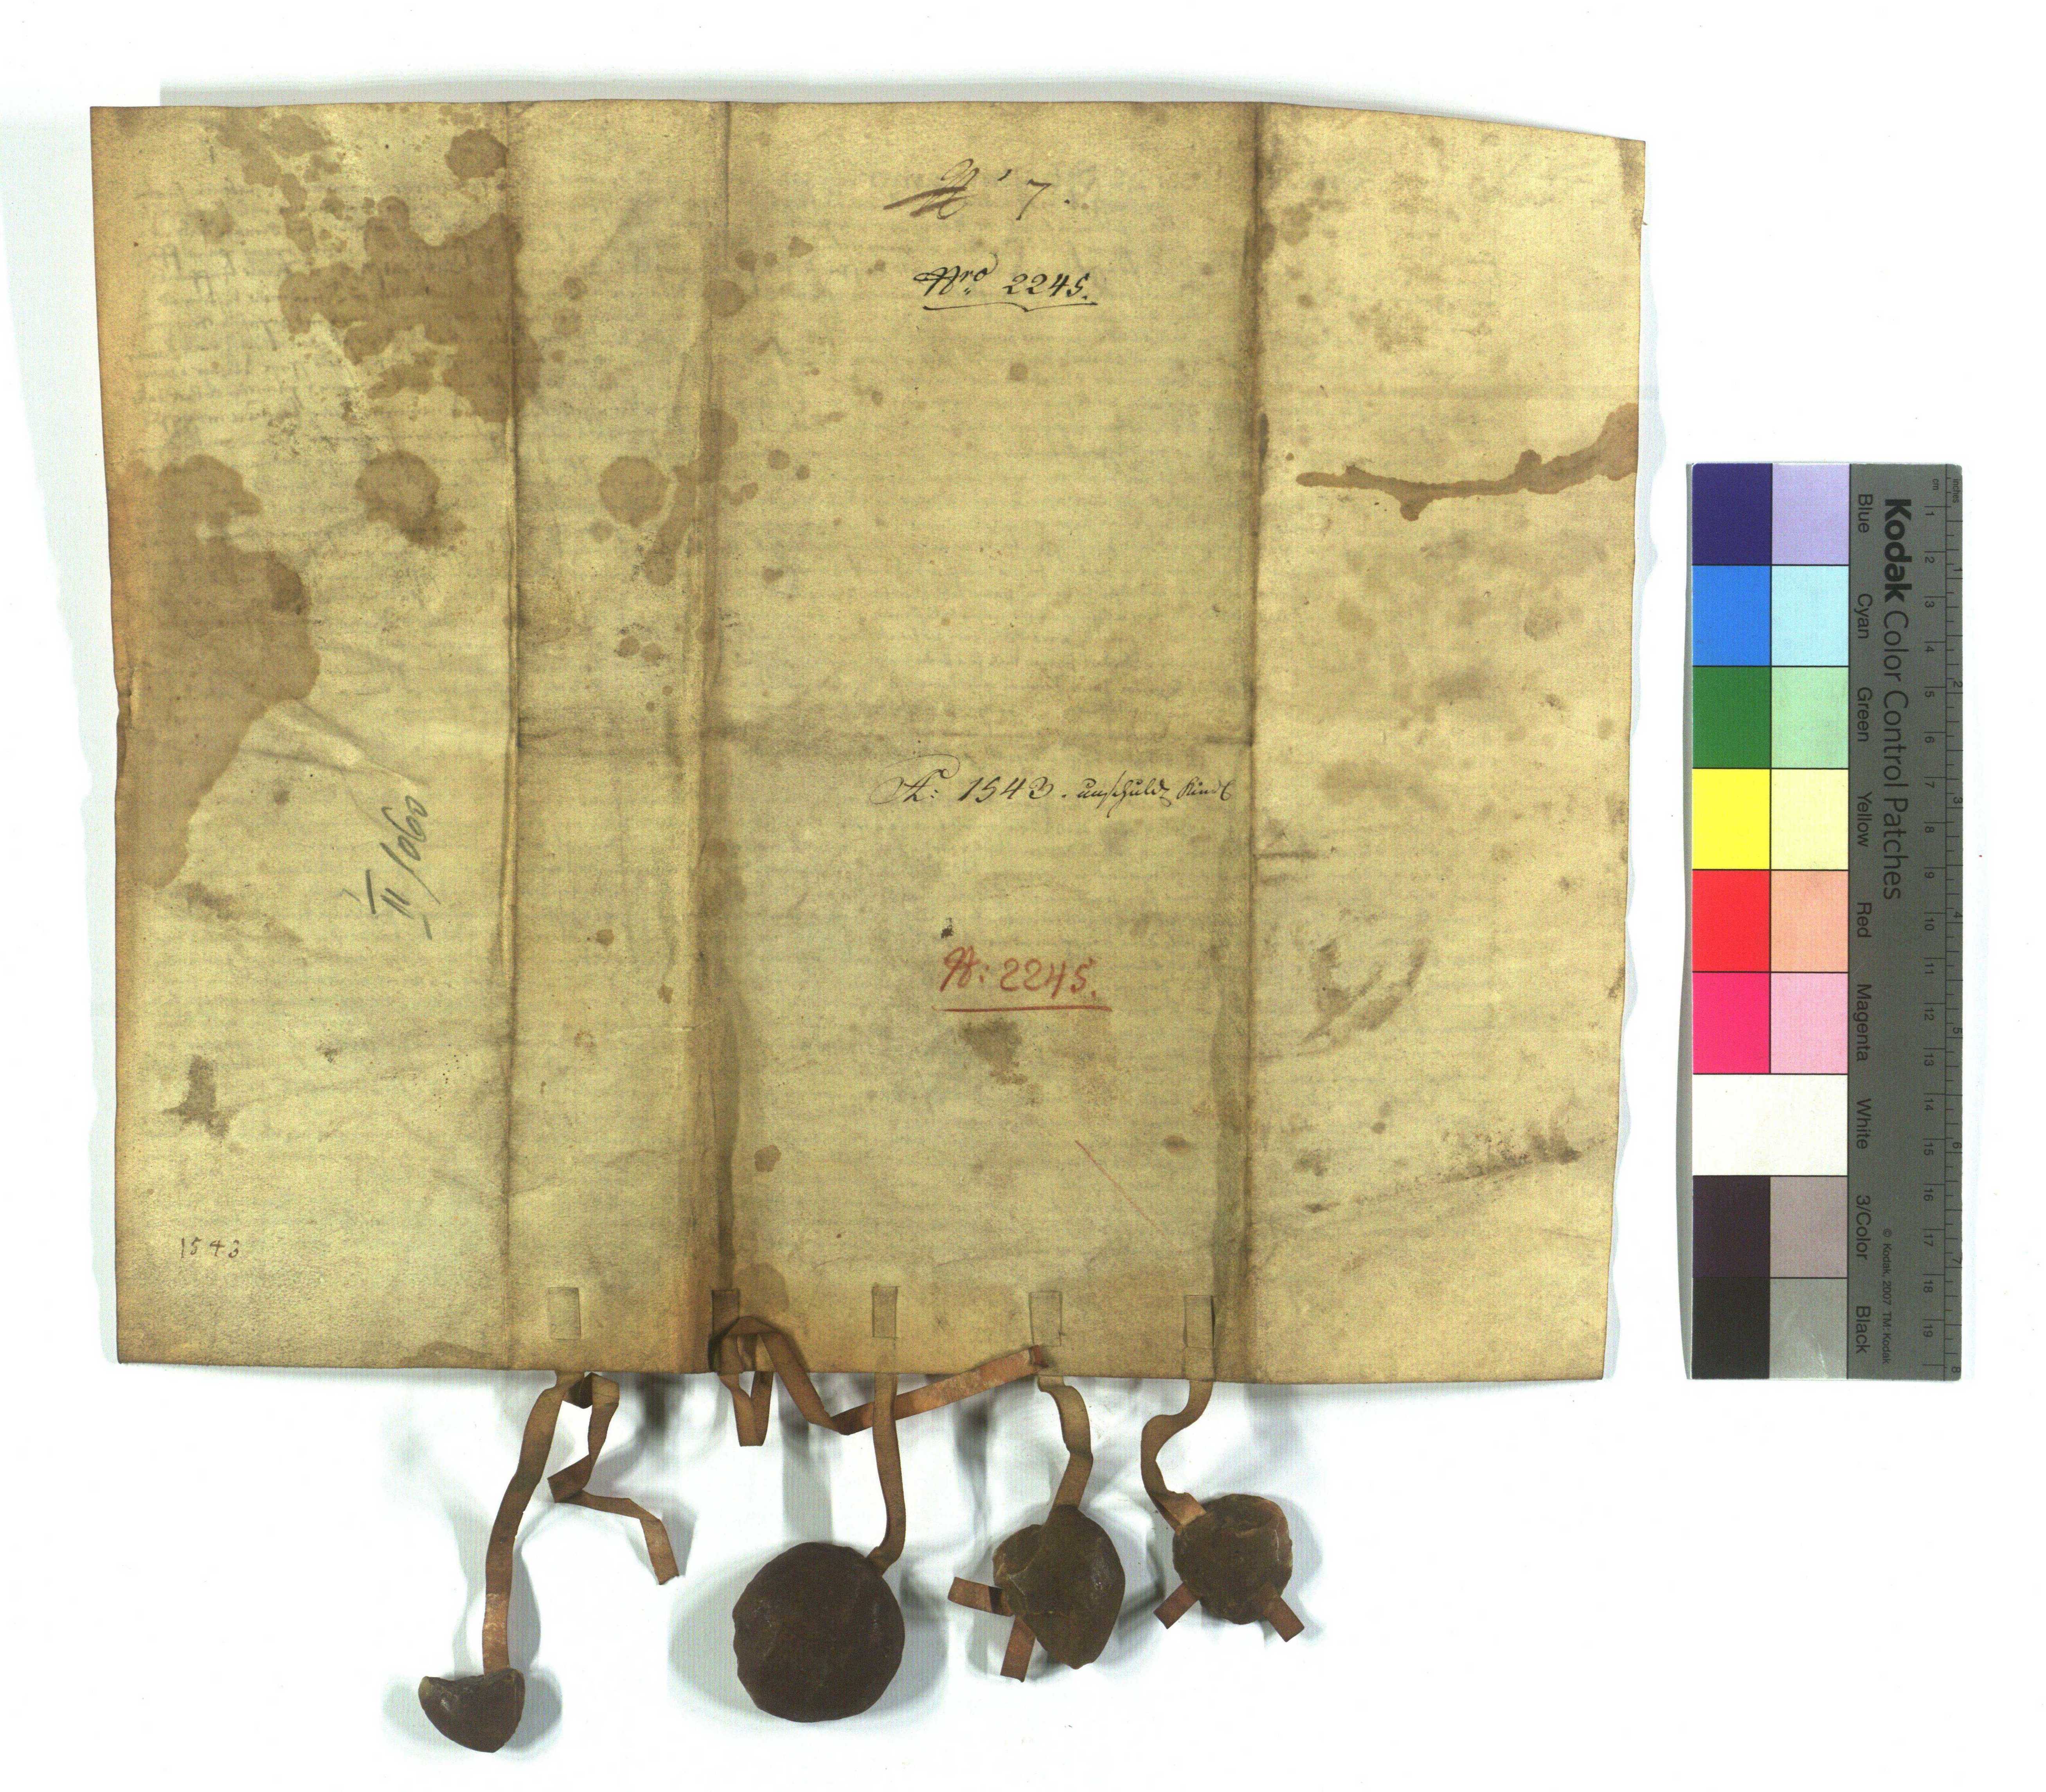 N° 7.
Nro 2245.
A: 1543. unschuld Kindl
II/060
N: 2245.
1543
Kodak Color Control Patches
Blue Cyan Green Yellow Red Magenta White 3/Color Black
© Kodak, 2007 TM: Kodak
cm 1 2 3 4 5 6 7 8 9 10 11 12 13 14 15 16 17 18 19
inches 1 2 3 4 5 6 7 8